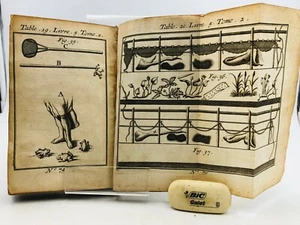 Table. 19. Livre. 5. Tome. 2.
Fig. 35.
C
B
A
N.° 74
Table. 20. Livre. 5. Tome. 2.
Fig. 36.
Fig. 37.
N.° 75.
BIC
Galet